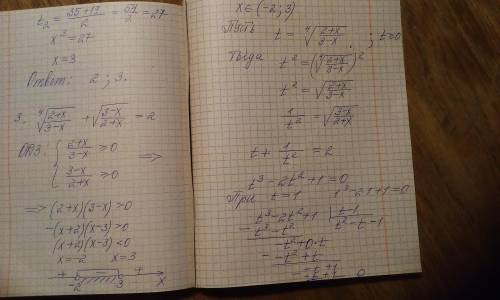 t₂ = (35+19)/2 = 54/2 = 27
x³ = 27
x = 3
Ответ: 2 ; 3.
3. ⁴√((2+x)/(3-x)) + √((3-x)/(2+x)) = 2
ОДЗ: { (2+x)/(3-x) ≥ 0
(3-x)/(2+x) ≥ 0 =>
=> (2+x)(3-x) > 0
-(x+2)(x-3) > 0
(x+2)(x-3) < 0
x = -2 x = 3
+ - +
-2 3 x
x ∈ (-2 ; 3)
Пусть t = ⁴√((2+x)/(3-x)) ; t>0
Тогда t² = (⁴√((2+x)/(3-x)))²
t² = √((2+x)/(3-x))
1/t² = √((3-x)/(2+x))
t + 1/t² = 2
t³ - 2t² + 1 = 0
При t = 1 1³ - 2·1 + 1 = 0
t³ - 2t² + 1 | t - 1
- t³ - t² t² - t - 1
-t² + 0·t
- -t² + t
-t + 1
- -t + 1
0